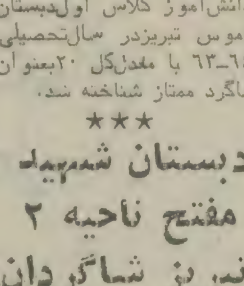 دانش‌آموز کلاس اول دبستان
موس تبریز در سال تحصیلی
۶۳ با معدل کل ۲۰ بعنوان
شاگرد ممتاز شناخته شد.
***
دبستان شهید
مفتح ناحیه ۲
تبریز شاگردان